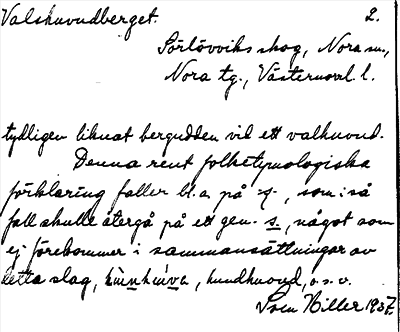 Valshuvudberget. 2.
Sörlövviks skog, Nora sn.,
Nora tg., Västernorrl. l.
tydligen liknat bergudden vid ett valhuvud.
Denna rent folketymologiska
förklaring faller bl.a. på -s-, som i så
fall skulle återgå på ett gen. -s, något som
ej förekommer i sammansättningar av
detta slag, hunhuve, hundhuvud, o.s.v.
Sven Hiller 1937.